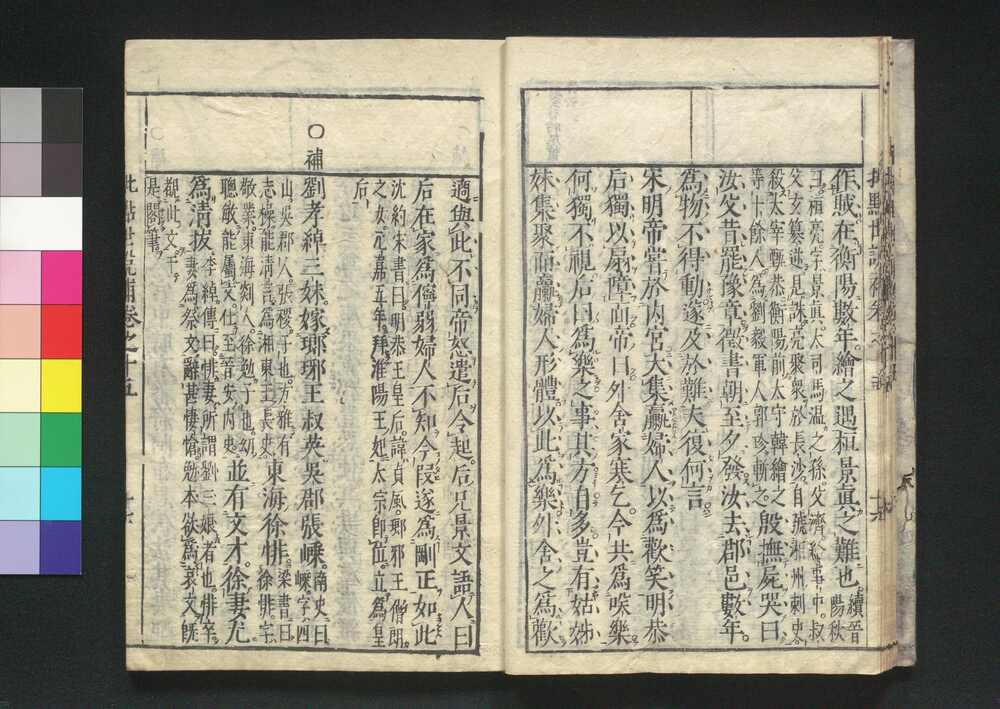 作賦在衡陽數年繪之遇桓景眞之難也續晉陽秋
曰桓亮字景眞大司馬温之孫父濟給事中叔
父玄簒逆見誅亮聚衆於長沙自號湘州刺史
殺太宰甄恭衡陽前太守韓繪之
等十餘人爲劉毅軍人郭珍斬之殷撫屍哭曰
汝父昔罷豫章徵書朝至夕發汝去郡邑數年
爲物不得動遂及於難夫復何言
宋明帝嘗於內宮大集臝婦人以爲歡笑明恭
后獨以扇障面帝曰外舍家寒乞今共爲笑樂
何獨不視后曰爲樂之事其方自多豈有姑姊
妹集聚而臝婦人形體以此爲樂外舍之爲歡
適與此不同帝怒遣后令起后兄景文語人曰
后在家爲儜弱婦人不知今段遂爲剛正如此
沈約宋書曰明恭王皇后諱貞風瑯邪王僧朗
之女元嘉五年拜淮陽王妃太宗卽位立爲皇
后
○補
劉孝綽三妹嫁瑯琊王叔英吳郡張嵊南史曰嵊字四
山吳郡人張稷子也方雅有
志操能淸言爲湘東王長史東海徐悱梁書曰徐悱字
敬業東海剡人徐勉子也幼
聰敏能屬文仕至晉安內史並有文才徐妻尤
爲淸拔孝綽傳曰悱妻所謂劉三娘者也悱卒
妻爲祭文辭甚悽愴勉本欲爲哀文旣
覩此文于
是閣筆
批點世說補卷之十五